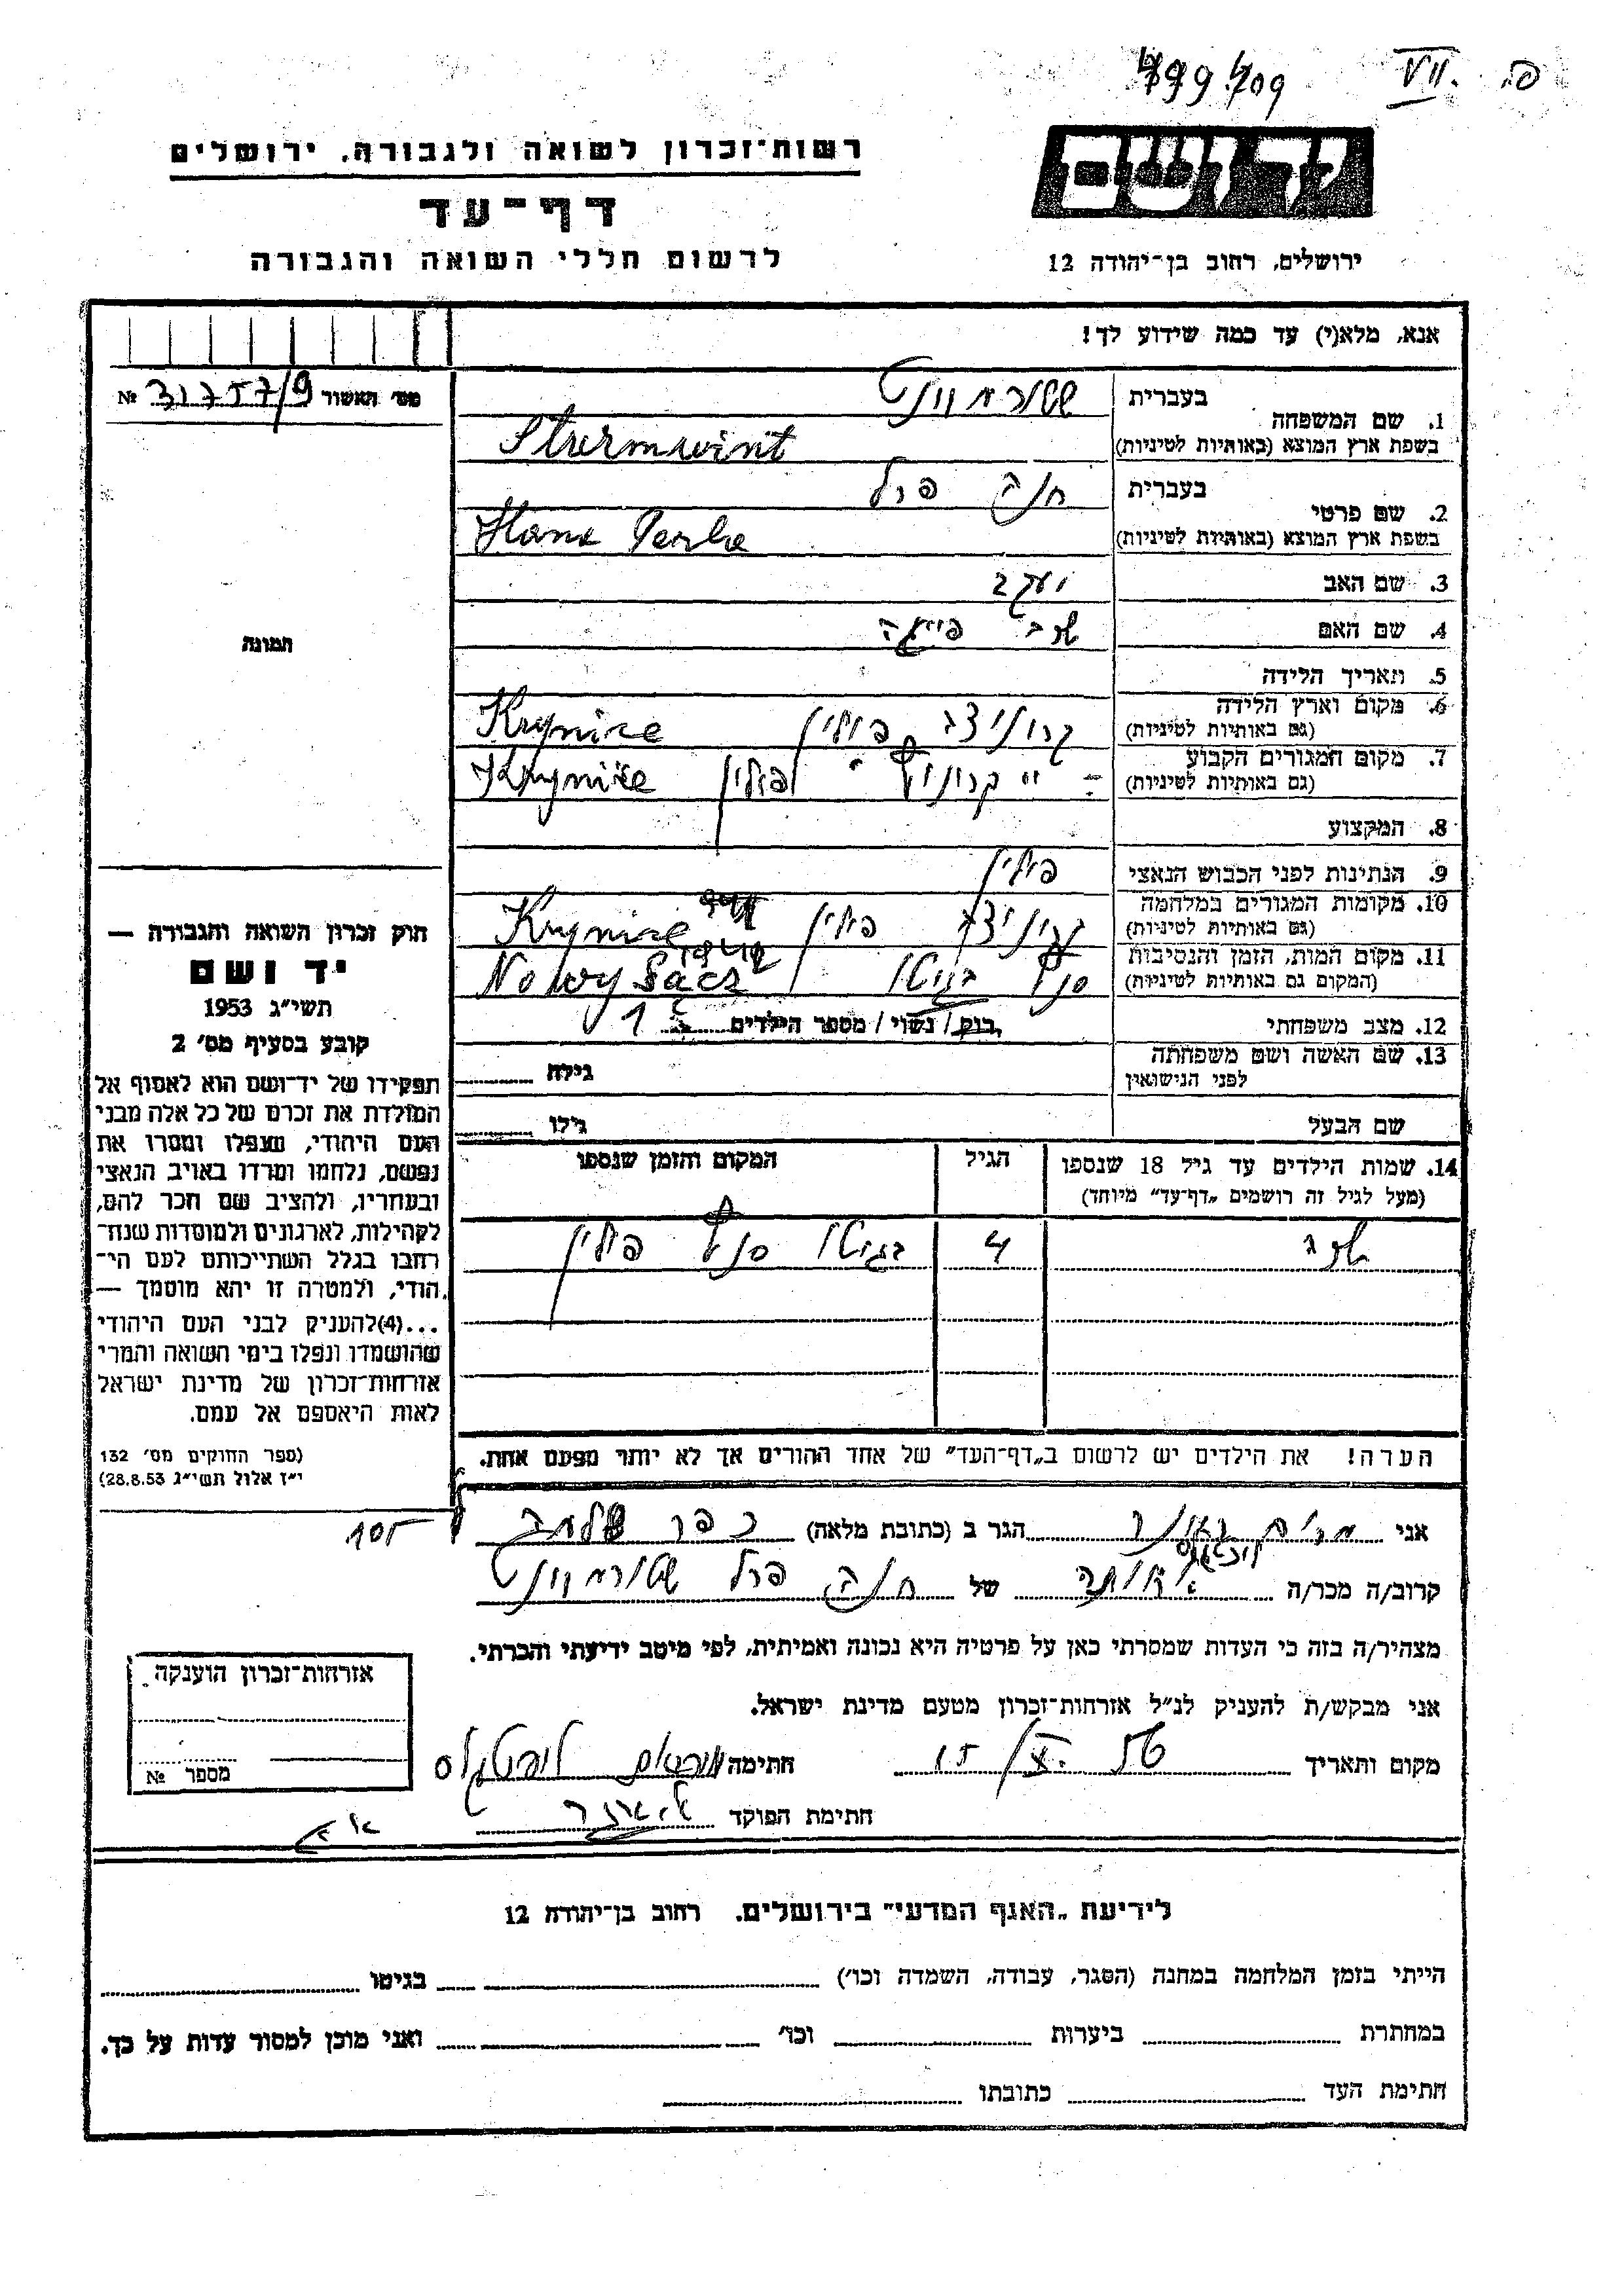 פ. VII.
רשות־זכרון לשואה ולגבורה, ירושלים
ידושם
דף־עד
לרשום חללי השואה והגבורה
ירושלים, רחוב בן־יהודה 12
אנא, מלא(י) עד כמה שידוע לך!
מס׳ האשור 31757/9 №
1. שם המשפחה בעברית שטורמווינט
בשפת ארץ המוצא (באותיות לטיניות) Sturmwint
2. שם פרטי בעברית חנה פרל
בשפת ארץ המוצא (באותיות לטיניות) Hana Perla
3. שם האב יעקב
4. שם האם שרה פייגה
5. תאריך הלידה
6. מקום וארץ הלידה קרוניצה פולין Krynice
(גם באותיות לטיניות)
7. מקום המגורים הקבוע קרוניצה פולין Krynice
(גם באותיות לטיניות)
8. המקצוע
9. הנתינות לפני הכבוש הנאצי פולין
10. מקומות המגורים במלחמה קרוניצה פולין Krynice
(גם באותיות לטיניות)
11. מקום המות, הזמן והנסיבות בגיטו Nowy Sącz 1942
(המקום גם באותיות לטיניות)
12. מצב משפחתי רווק / נשוי / מספר הילדים 1
13. שם האשה ושם משפחתה גילה
לפני הנישואין
שם הבעל גילו
14. שמות הילדים עד גיל 18 שנספו הגיל המקום והזמן שנספו
(מעל לגיל זה רושמים „דף־עד״ מיוחד)
שרה 4 בגיטו סנץ פולין
הערה! את הילדים יש לרשום ב„דף־העד״ של אחד ההורים אך לא יותר מפעם אחת.
תמונה
חוק זכרון השואה והגבורה —
יד ושם
תשי״ג 1953
קובע בסעיף מס׳ 2
תפקידו של יד־ושם הוא לאסוף אל
המולדת את זכרם של כל אלה מבני
העם היהודי, שנפלו ומסרו את
נפשם, נלחמו ומרדו באויב הנאצי
ובעוזריו, ולהציב שם וזכר להם,
לקהילות, לארגונים ולמוסדות שנח־
רבו בגלל השתייכותם לעם הי־
הודי, ולמטרה זו יהא מוסמך —
...(4)להעניק לבני העם היהודי
שהושמדו ונפלו בימי השואה והמרי
אזרחות־זכרון של מדינת ישראל
לאות היאספם אל עמם.
(ספר החוקים מס׳ 132
י״ז אלול תשי״ג 28.8.53)
105
אני מרים הגר ב (כתובת מלאה) כפר שלמה
קרוב/ה מכר/ה אחותה של חנה פרל שטורמווינט
מצהיר/ה בזה כי העדות שמסרתי כאן על פרטיה היא נכונה ואמיתית, לפי מיטב ידיעתי והכרתי.
אני מבקש/ת להעניק לנ״ל אזרחות־זכרון מטעם מדינת ישראל.
מקום ותאריך 15/X. 56 חתימה
חתימת הפוקד
אזרחות־זכרון הוענקה
מספר №
לידיעת „האגף המדעי״ בירושלים. רחוב בן־יהודה 12
הייתי בזמן המלחמה במחנה (הסגר, עבודה, השמדה וכו׳) בגיטו
במחתרת ביערות וכו׳ ואני מוכן למסור עדות על כך.
חתימת העד כתובתו